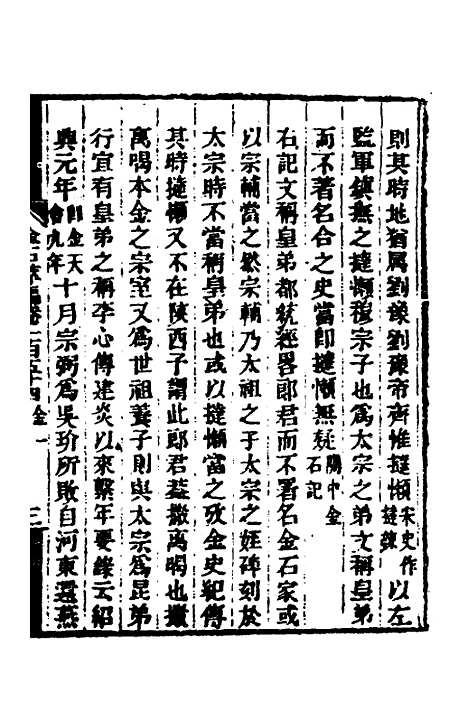 則其時地猶屬劉豫劉豫帝齊惟撻懶宋史作撻辣以左
監軍鎮撫之撻懶穆宗子也爲太宗之弟文稱皇弟
而不著名合之史當即撻懶無疑關中金石記
石記文稱皇弟都統經畧郎君而不著名金石家或
以宗輔當之然宗輔乃太祖之子太宗之姪碑刻於
太宗時不當稱皇弟也或以撻懶當之攷金史紀傳
其時撻懶又不在陝西子謂此郎君葢撒离喝也撒
离喝本金之宗室又爲世祖養子則與太宗爲昆弟
行宜有皇弟之稱李心傳建炎以來繫年要錄云紹
興元年即金天會九年十月宗弼爲吳玠所敗自河東還燕
金石萃編卷一百五十四 金一 三